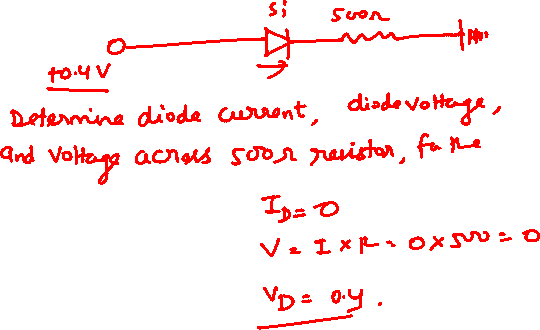 Si
500Ω
+0.4V
Determine diode current, diode voltage,
and voltage across 500Ω resistor, for the
I_D = 0
V = I × R = 0 × 500 = 0
V_D = 0.4.